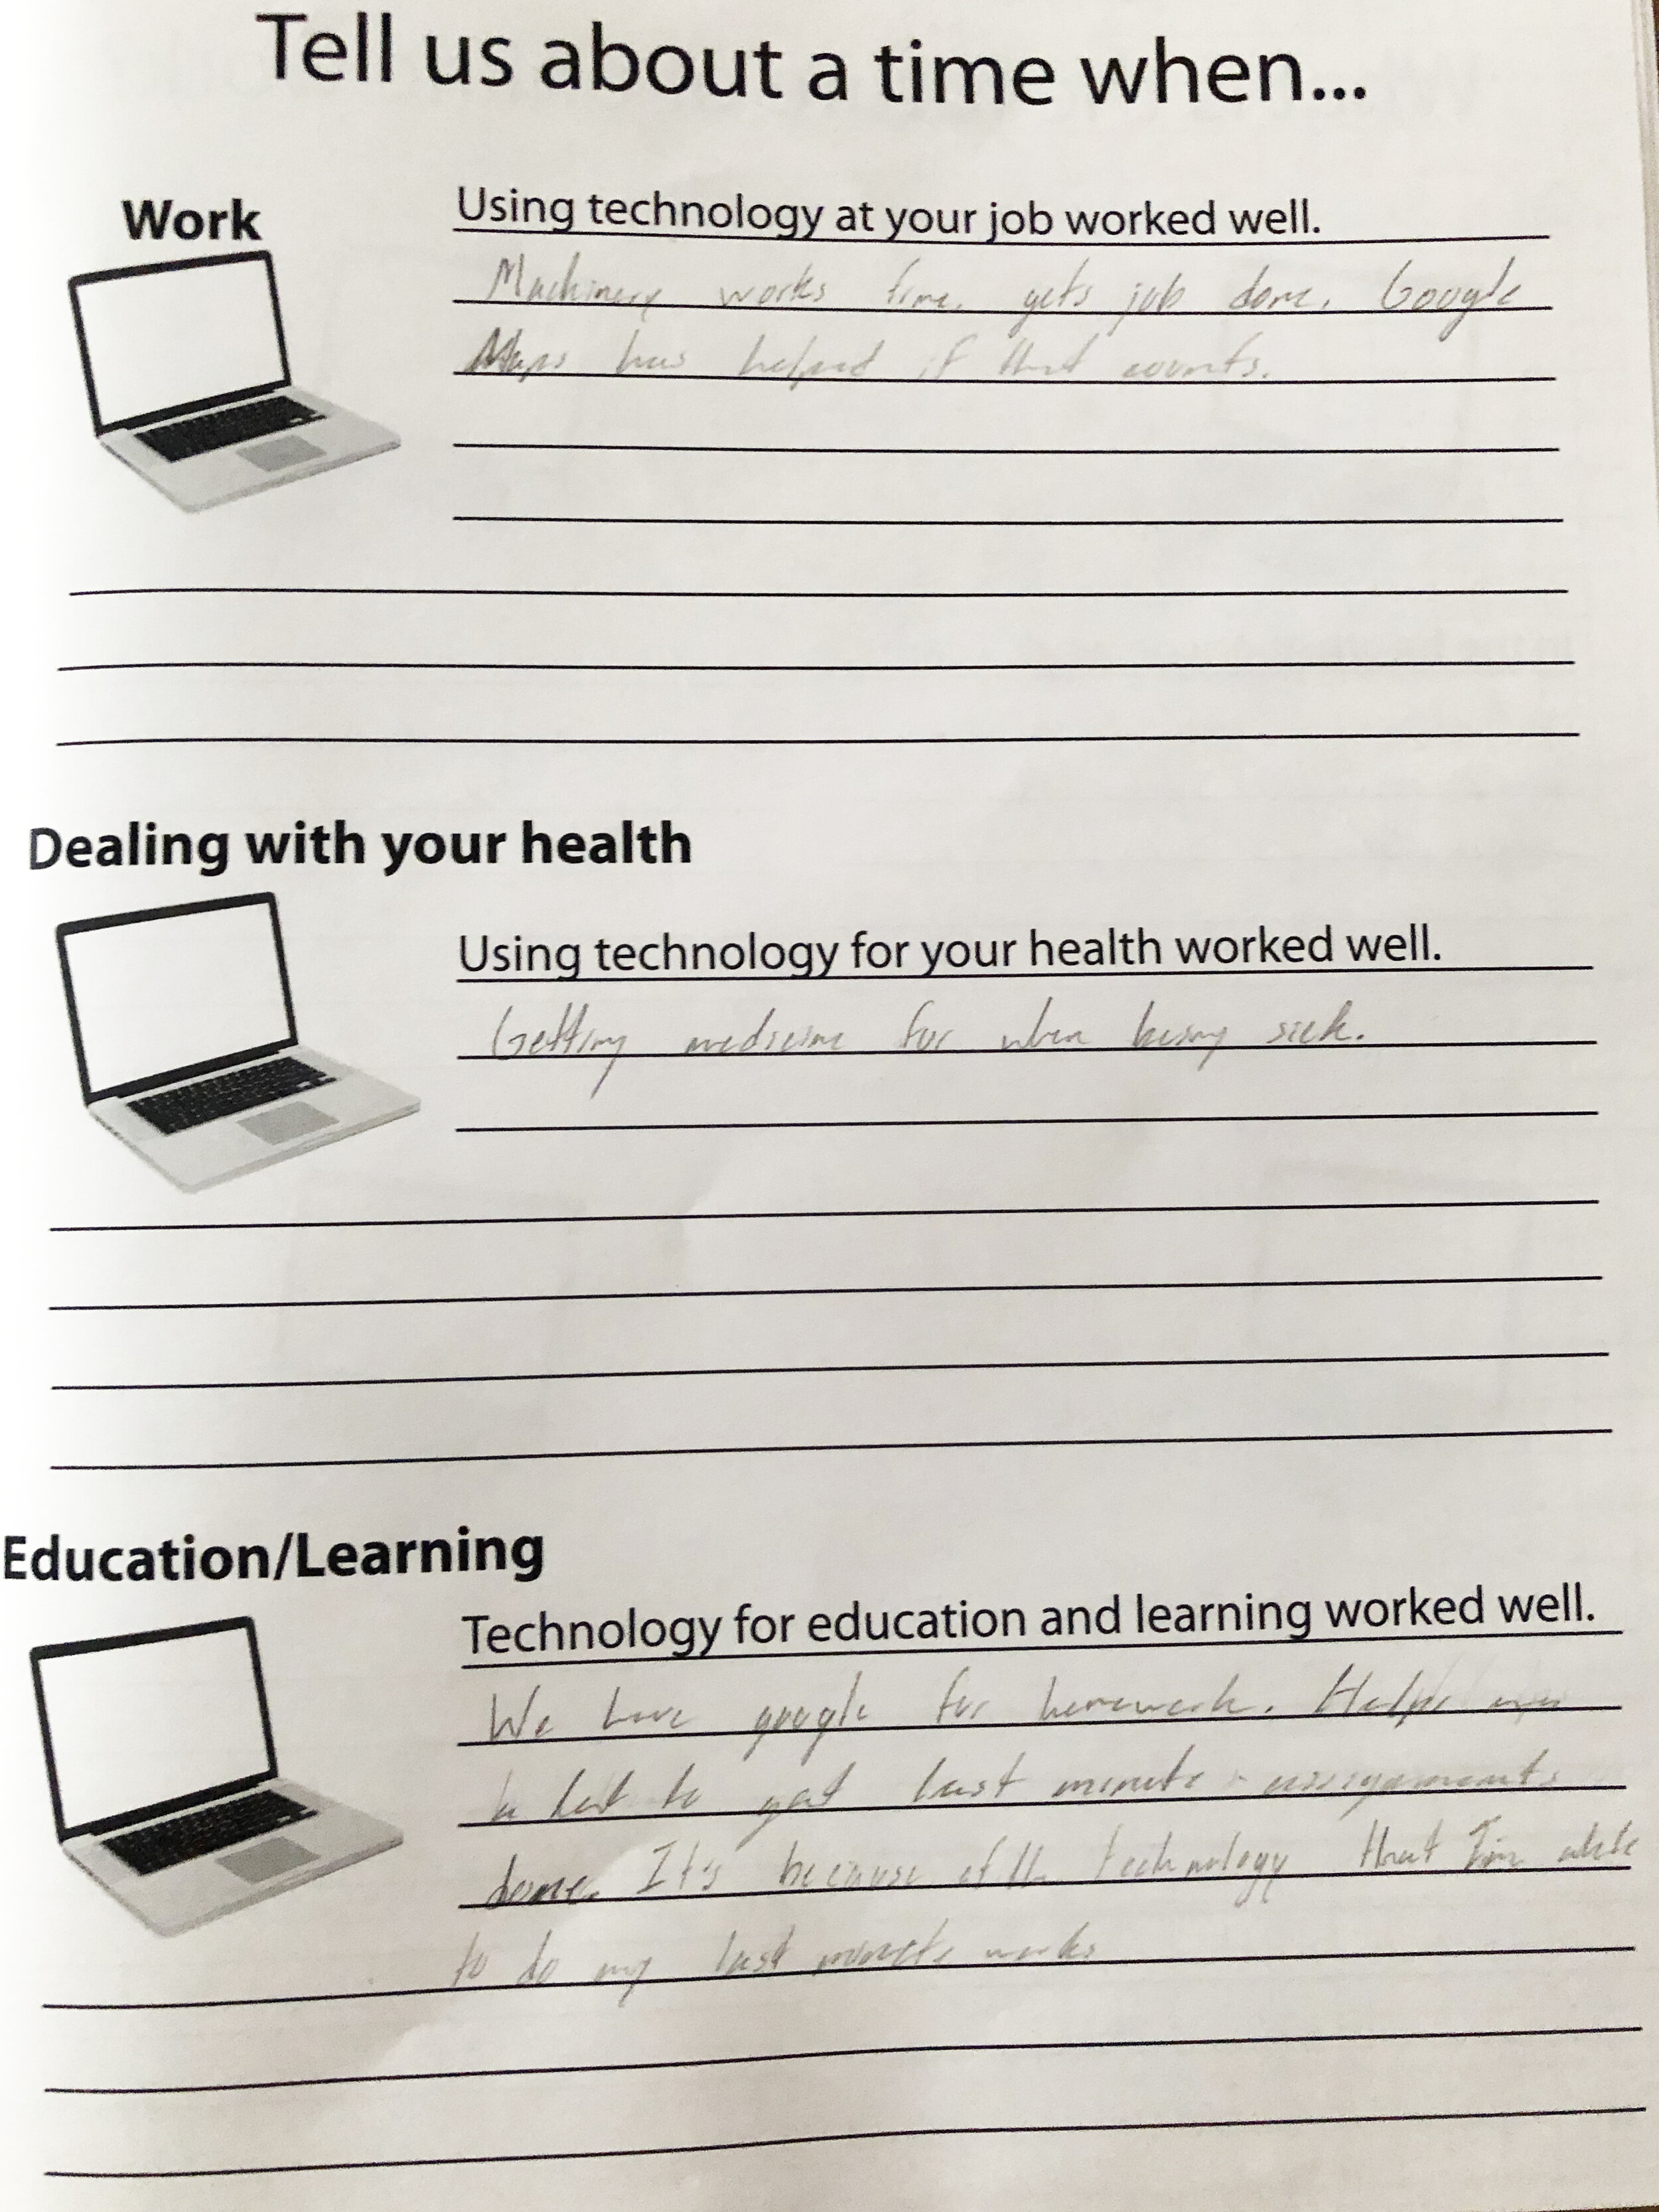 Tell us about a time when...
Work
Using technology at your job worked well.
Machinery works fine. gets job done. Google
Maps has helped if that counts.
Dealing with your health
Using technology for your health worked well.
Getting medicine for when being sick.
Education/Learning
Technology for education and learning worked well.
We have google for homework. Helps
a lot to get last minute assignments
done. It's because of the technology that I'm able
to do my last minute works